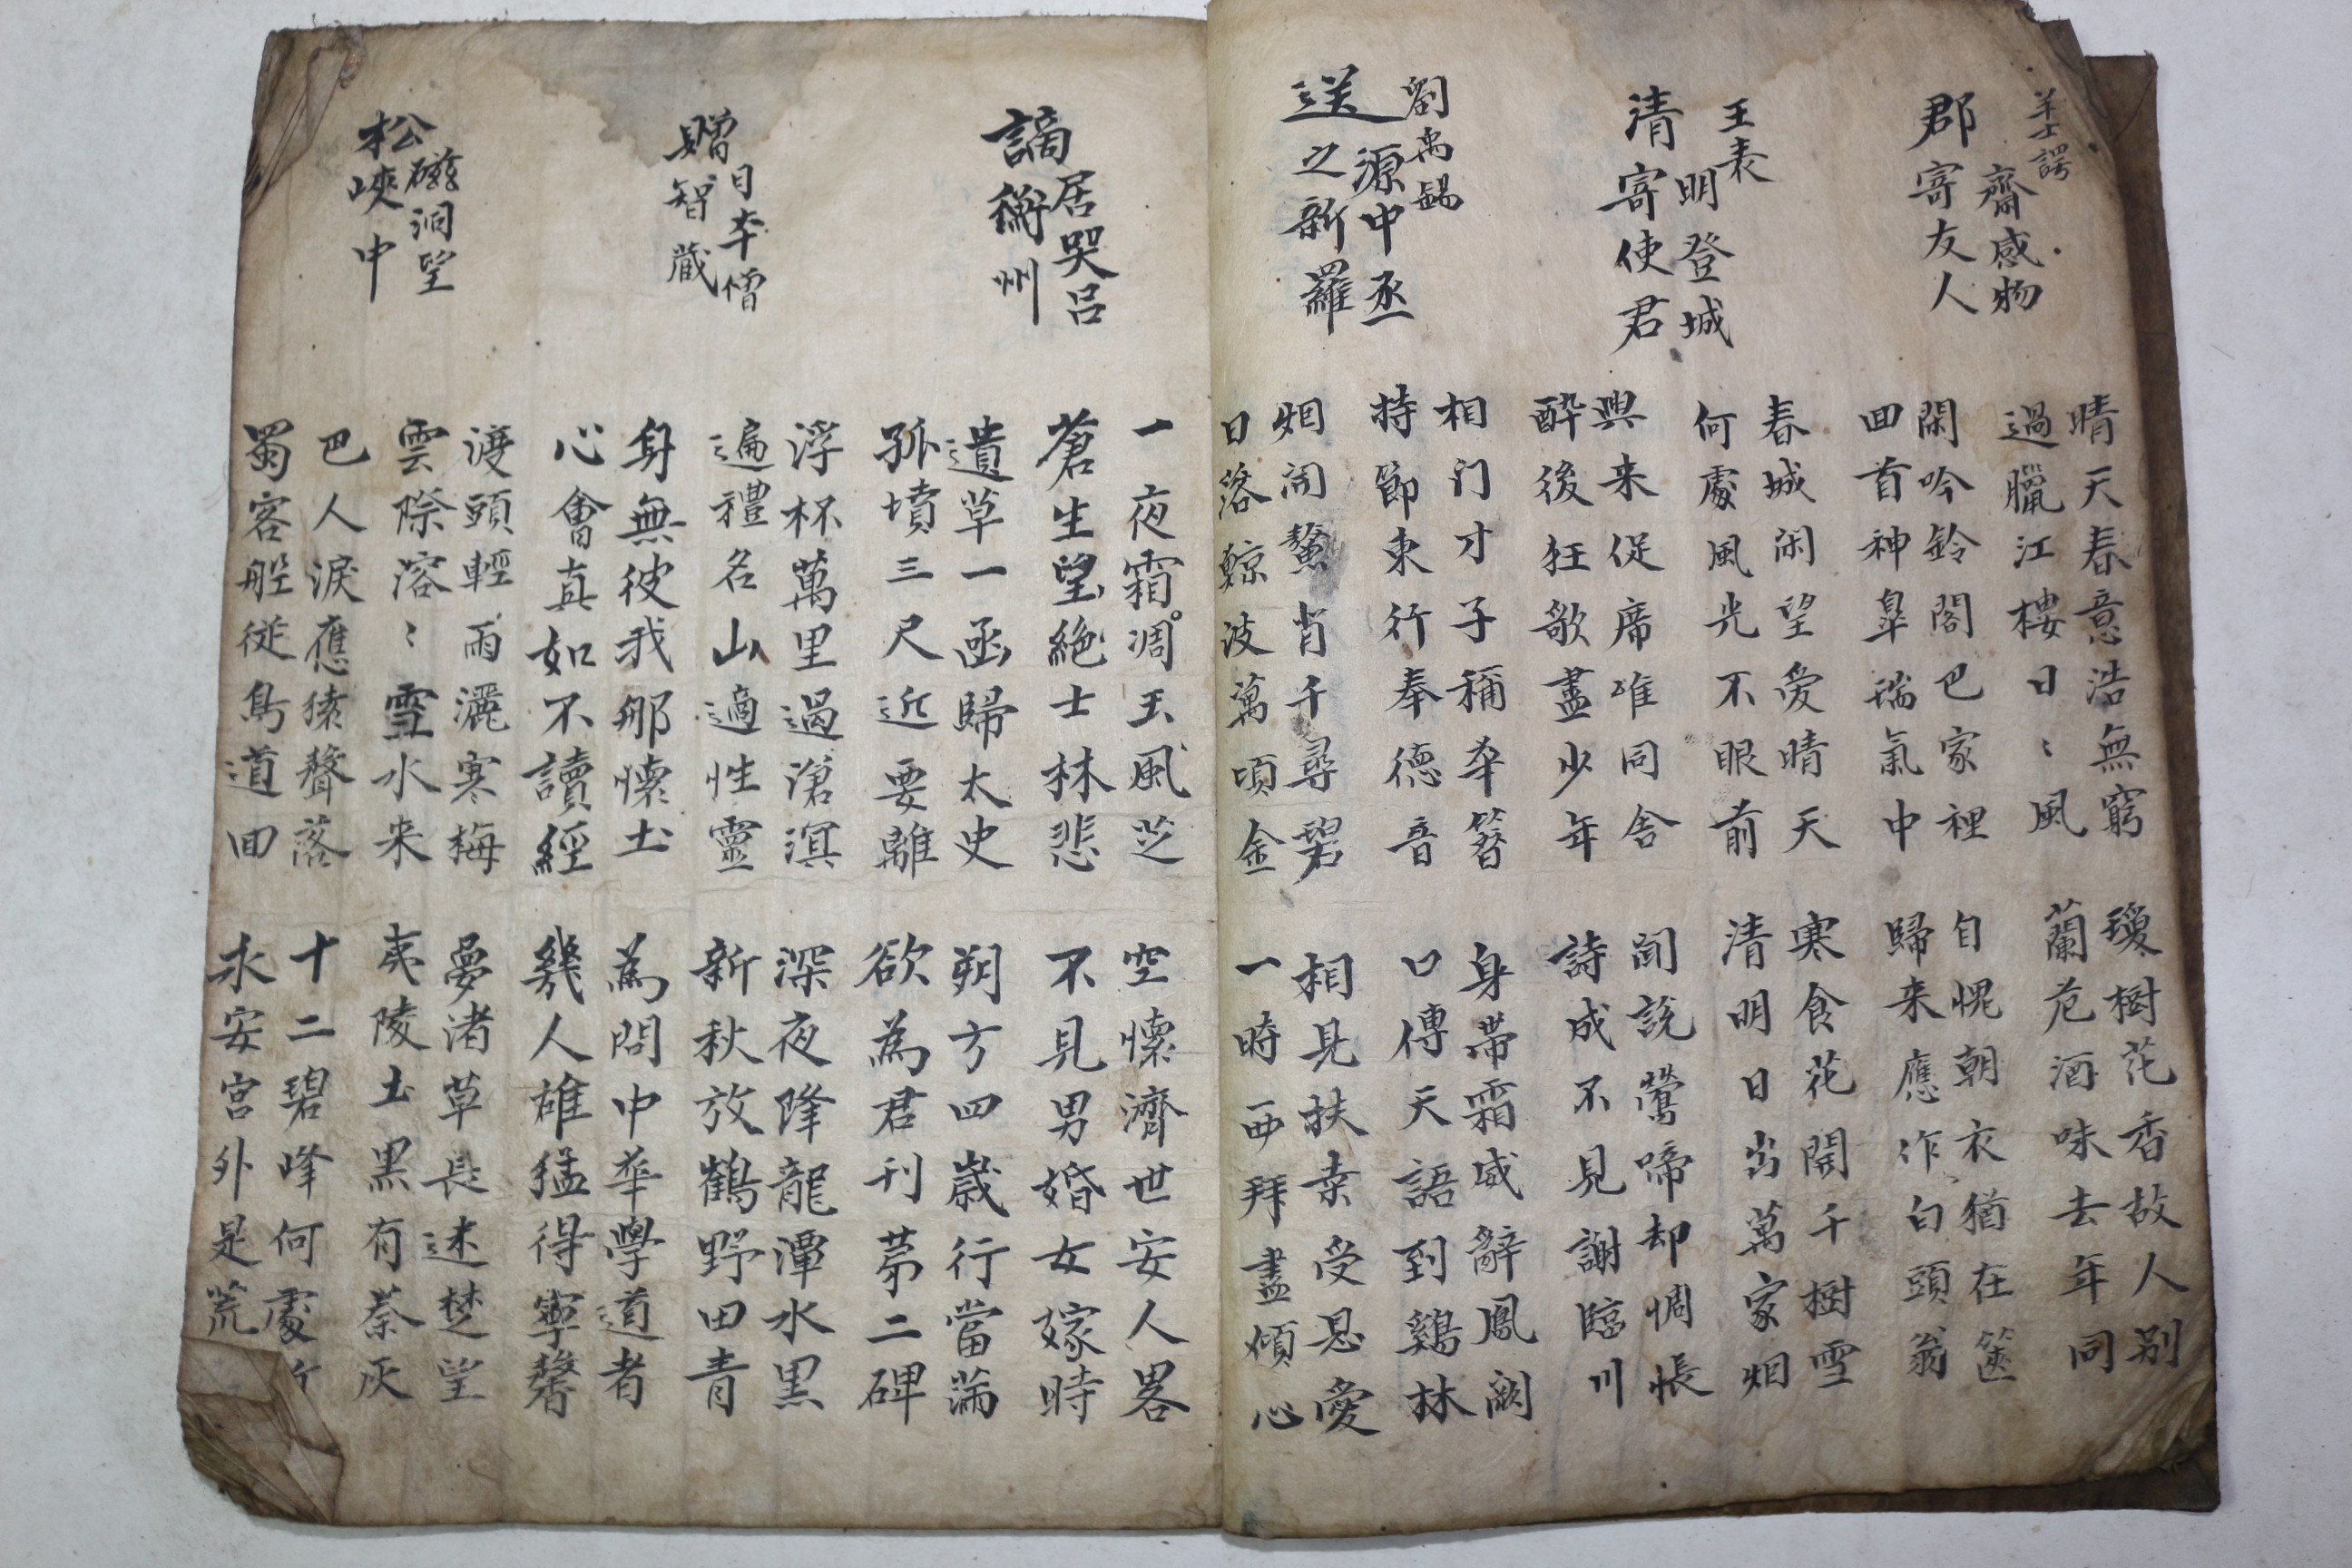 羊士諤
齋感物
郡寄友人
晴天春意浩無窮
過臘江樓日〻風
瓊樹花香故人別
蘭巵酒味去年同
閑吟鈴閣巴家裡
回首神皐瑞氣中
自愧朝衣猶在篋
歸来應作白頭翁
王表
明登城
清寄使君
春城閑望愛晴天
何處風光不眼前
寒食花開千樹雪
清明日出萬家烟
興来促席唯同舎
酔後狂歌盡少年
聞説鶯啼却惆悵
詩成不見謝臨川
劉禹錫
源中丞
送之新羅
相门才子稱華簪
持節東行奉德音
身帶霜威辭鳳闕
口傳天語到鷄林
烟開鰲背千尋碧
日落鯨波萬頃金
相見扶桑受恩愛
一時西拜盡傾心
居哭呂
謫衡州
一夜霜凋玉風芝
蒼生望絶士林悲
空懷濟世安人畧
不見男婚女嫁時
遺草一函歸太史
孤墳三尺近要離
朔方四歳行當滿
欲為君刊苐二碑
日本僧
贈智蔵
浮杯萬里過滄溟
遍禮名山適性靈
深夜降龍潭水黒
新秋放鶴野田青
身無彼我那懷土
心會真如不讀經
為問中華學道者
幾人雄猛得寧馨
磁洞望
松峽中
渡頭輕雨灑寒梅
雲際溶〻雪水来
夢渚草長迷楚望
夷陵土黒有秦灰
巴人淚應猿聲落
蜀客船從鳥道回
十二碧峰何處所
永安宮外是荒